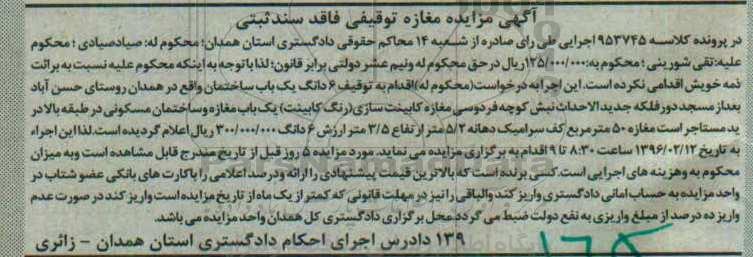 آگهی مزایده مغازه توقیفی فاقد سندثبتی
در پرونده کلاسه ۹۵۳۷۴۵ اجرایی طی رای صادره از شعبه ۱۴ محاکم حقوقی دادگستری استان همدان؛ محکوم له: صیادصیادی ؛ محکوم
علیه:تقی شورینی ؛ محکوم به:۱۲۵/۰۰۰/۰۰۰ریال درحق محکوم له ونیم عشر دولتی برابر قانون؛ لذا باتوجه به اینکه محکوم علیه نسبت به برائت
ذمه خویش اقدامی نکرده است. این اجرا به درخواست(محکوم له)اقدام به توقیف ۶ دانگ یک باب ساختمان واقع در همدان روستای حسن آباد
بعداز مسجد دورفلکه جدیدالاحداث نبش کوچه فردوسی مغازه کابینت سازی(رنگ کابینت) یک باب مغازه وساختمان مسکونی در طبقه بالا در
ید مستاجر است مغازه ۵۰ مترمربع کف سرامیک دهانه ۵/۲ متر ارتفاع ۳/۵ متر ارزش ۶ دانگ ۳۰۰/۰۰۰/۰۰۰ ریال اعلام گردیده است.لذا این اجراء
به تاریخ ۱۳۹۶/۰۲/۱۲ ساعت ۸:۳۰ تا ۹ اقدام به برگزاری مزایده می نماید. مورد مزایده ۵ روز قبل از تاریخ مندرج قابل مشاهده است وبه میزان
محکوم به وهزینه های اجرایی است.کسی برنده است که بالاترین قیمت پیشنهادی را ارائه و۱۰درصد اعلامی را باکارت های بانکی عضو شتاب در
واحد مزایده به حساب امانی دادگستری واریز کند والباقی رانیز در مهلت قانونی که کمتر از یک ماه از تاریخ مزایده است واریز کند در صورت عدم
واریز ده درصد از مبلغ واریزی به نفع دولت ضبط می گردد محل برگزاری دادگستری کل همدان واحد مزایده می باشد.
۱۳۹ دادرس اجرای احکام دادگستری استان همدان - زائری